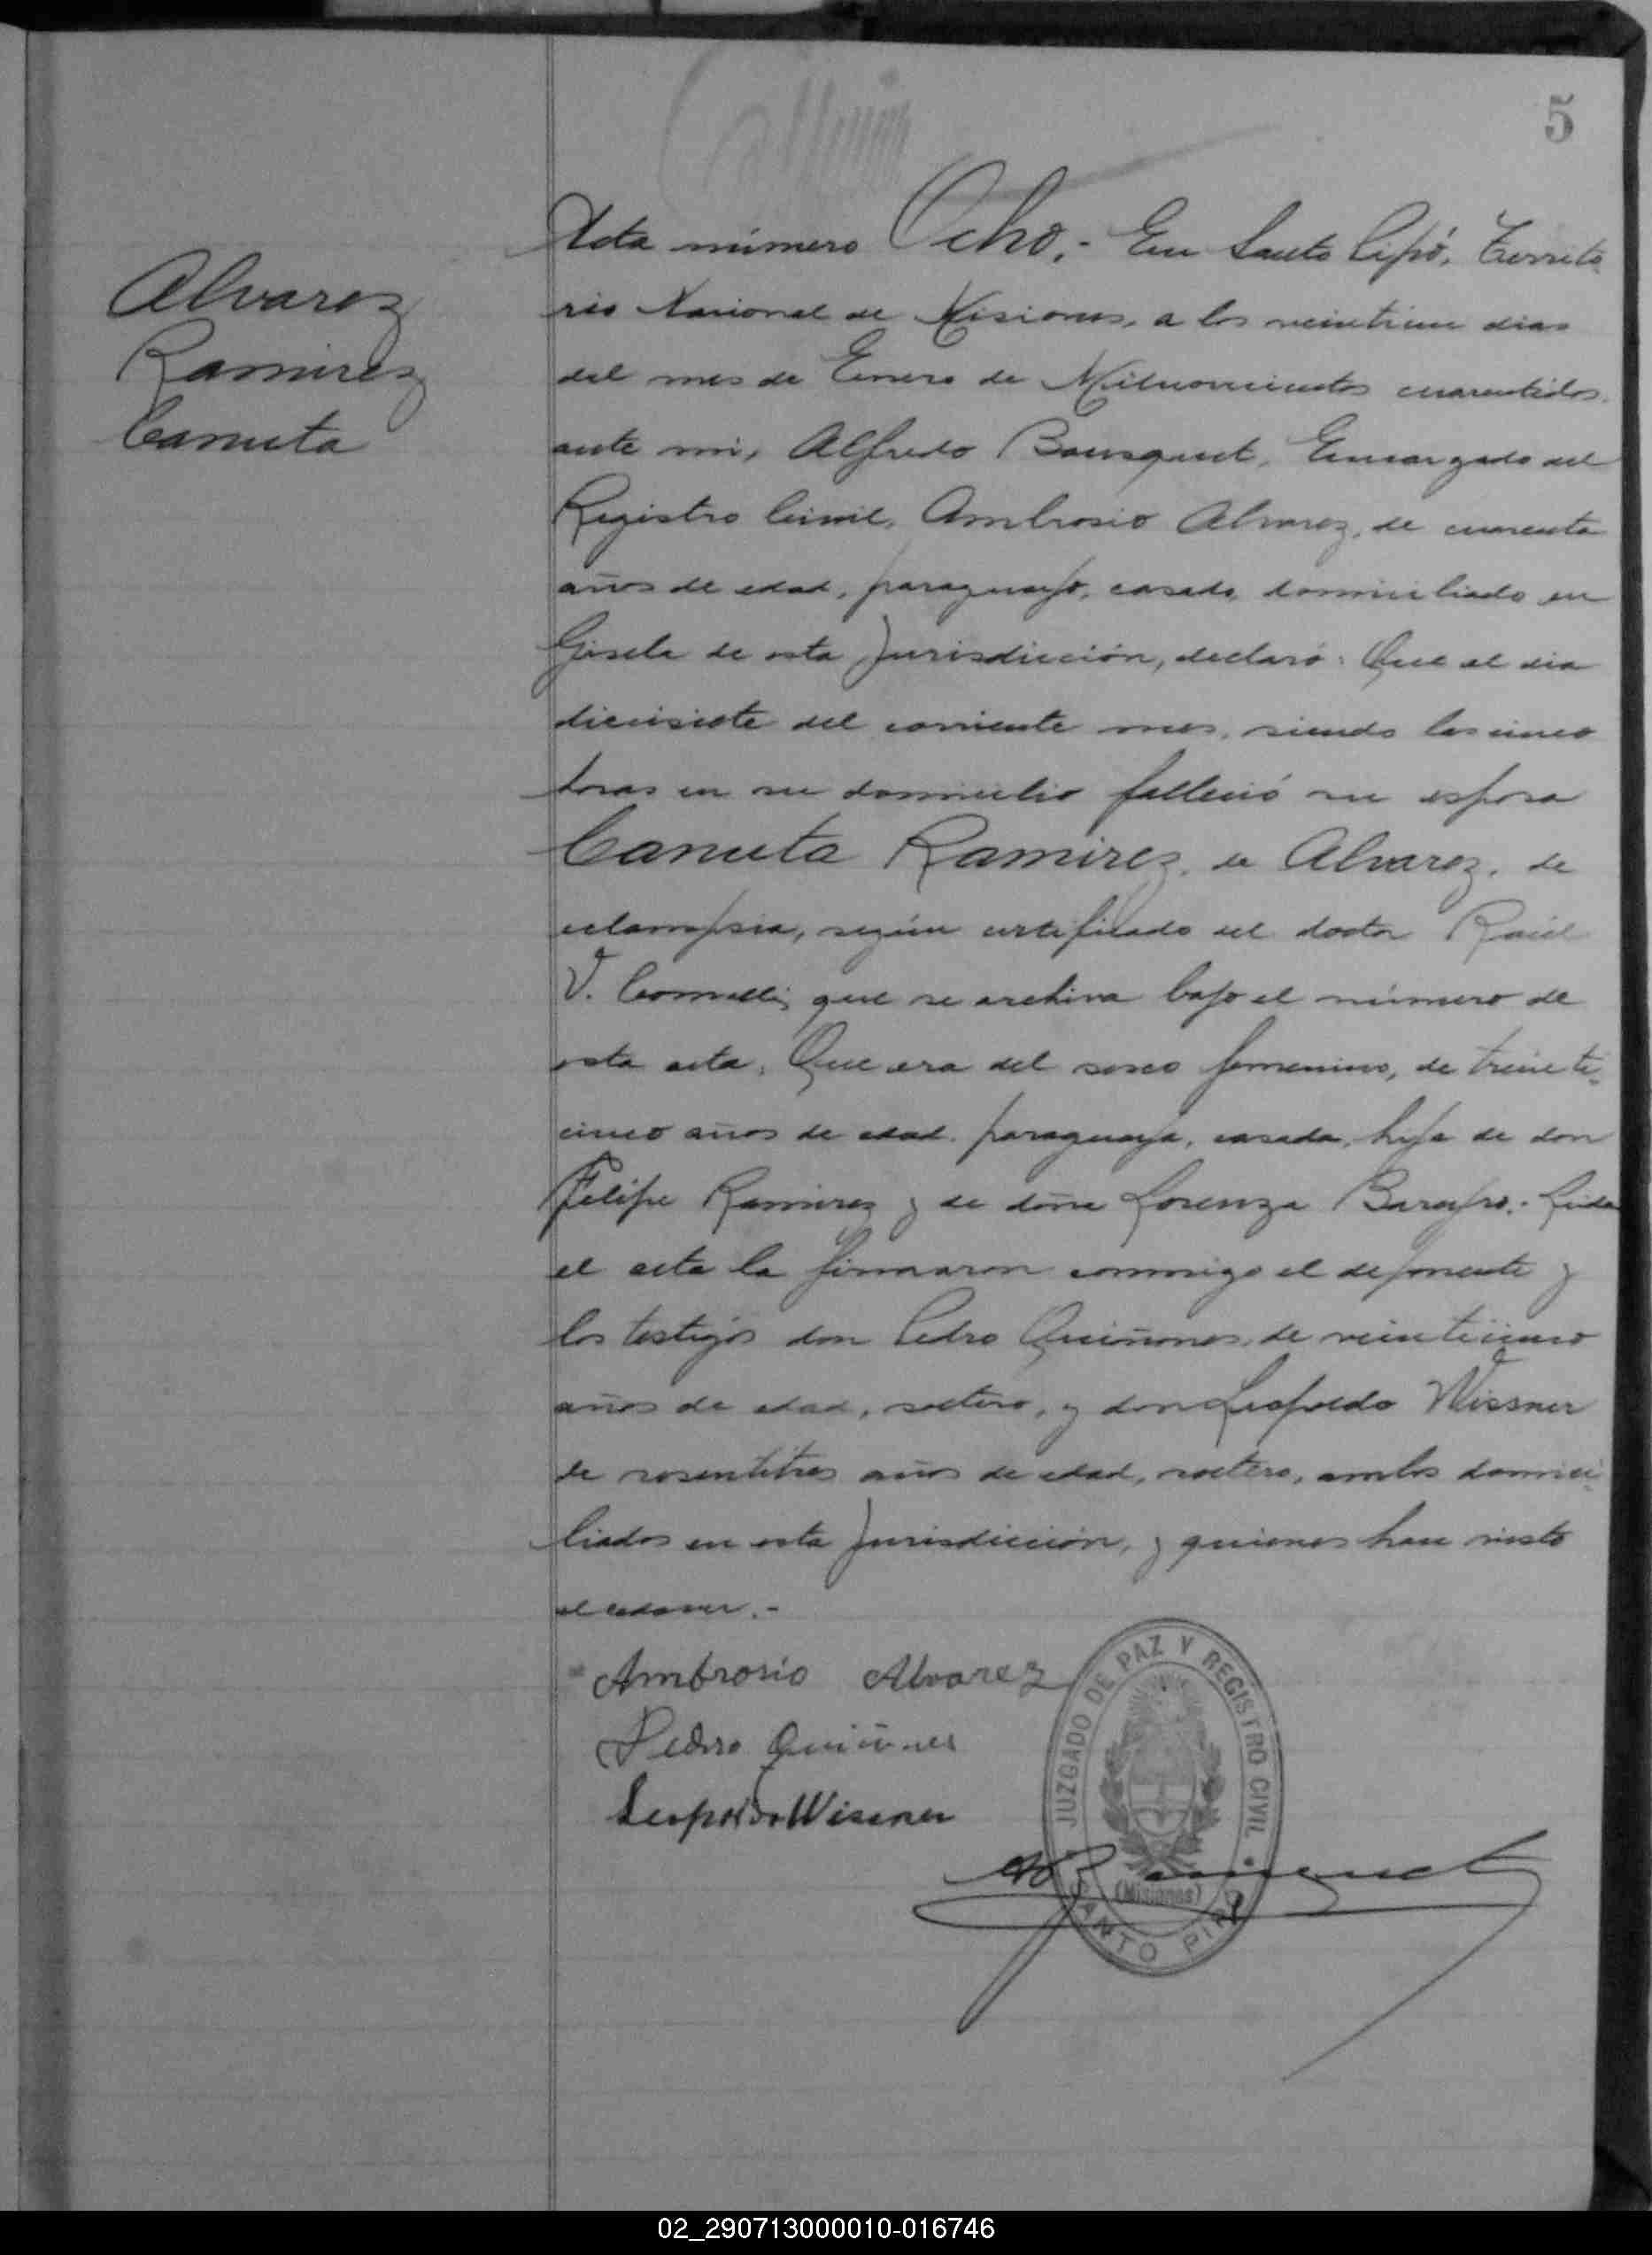 5
Alvarez
Ramirez
Canuta
Acta número Ocho.- En Santo Pipó, Territo
rio Nacional de Misiones, a los veintiun dias
del mes de Enero de Milnovecientos cuarentidos
ante mi, Alfredo Bousquet, Encargado del
Registro Civil, Ambrosio Alvarez, de cuarenta
años de edad, paraguayo, casado, domiciliado en
Gisela de esta Jurisdicción, declaró: Que el dia
diecisiete del corriente mes, siendo las cinco
horas en su domicilio falleció su esposa
Canuta Ramirez de Alvarez, de
eclampsia, según certificado del doctor Raúl
V. que se archiva bajo el número de
esta acta. Que era del sexo femenino, de treinti-
cinco años de edad, paraguaya, casada, hija de don
Felipe Ramirez y de doña Lorenza Leida
el acta la firmaron conmigo el deponente y
los testigos don Pedro Quiñones, de veinticinco
años de edad, soltero, y don Leopoldo Wissner
de sesentitres años de edad, soltero, ambos domici-
liados en esta Jurisdicción, y quienes han visto
el cadaver.-
Ambrosio Alvarez
Pedro Quiñones
Leopoldo Wissner
JUZGADO DE PAZ Y REGISTRO CIVIL
(Misiones)
SANTO PIPÓ
ABousquet
02_290713000010-016746